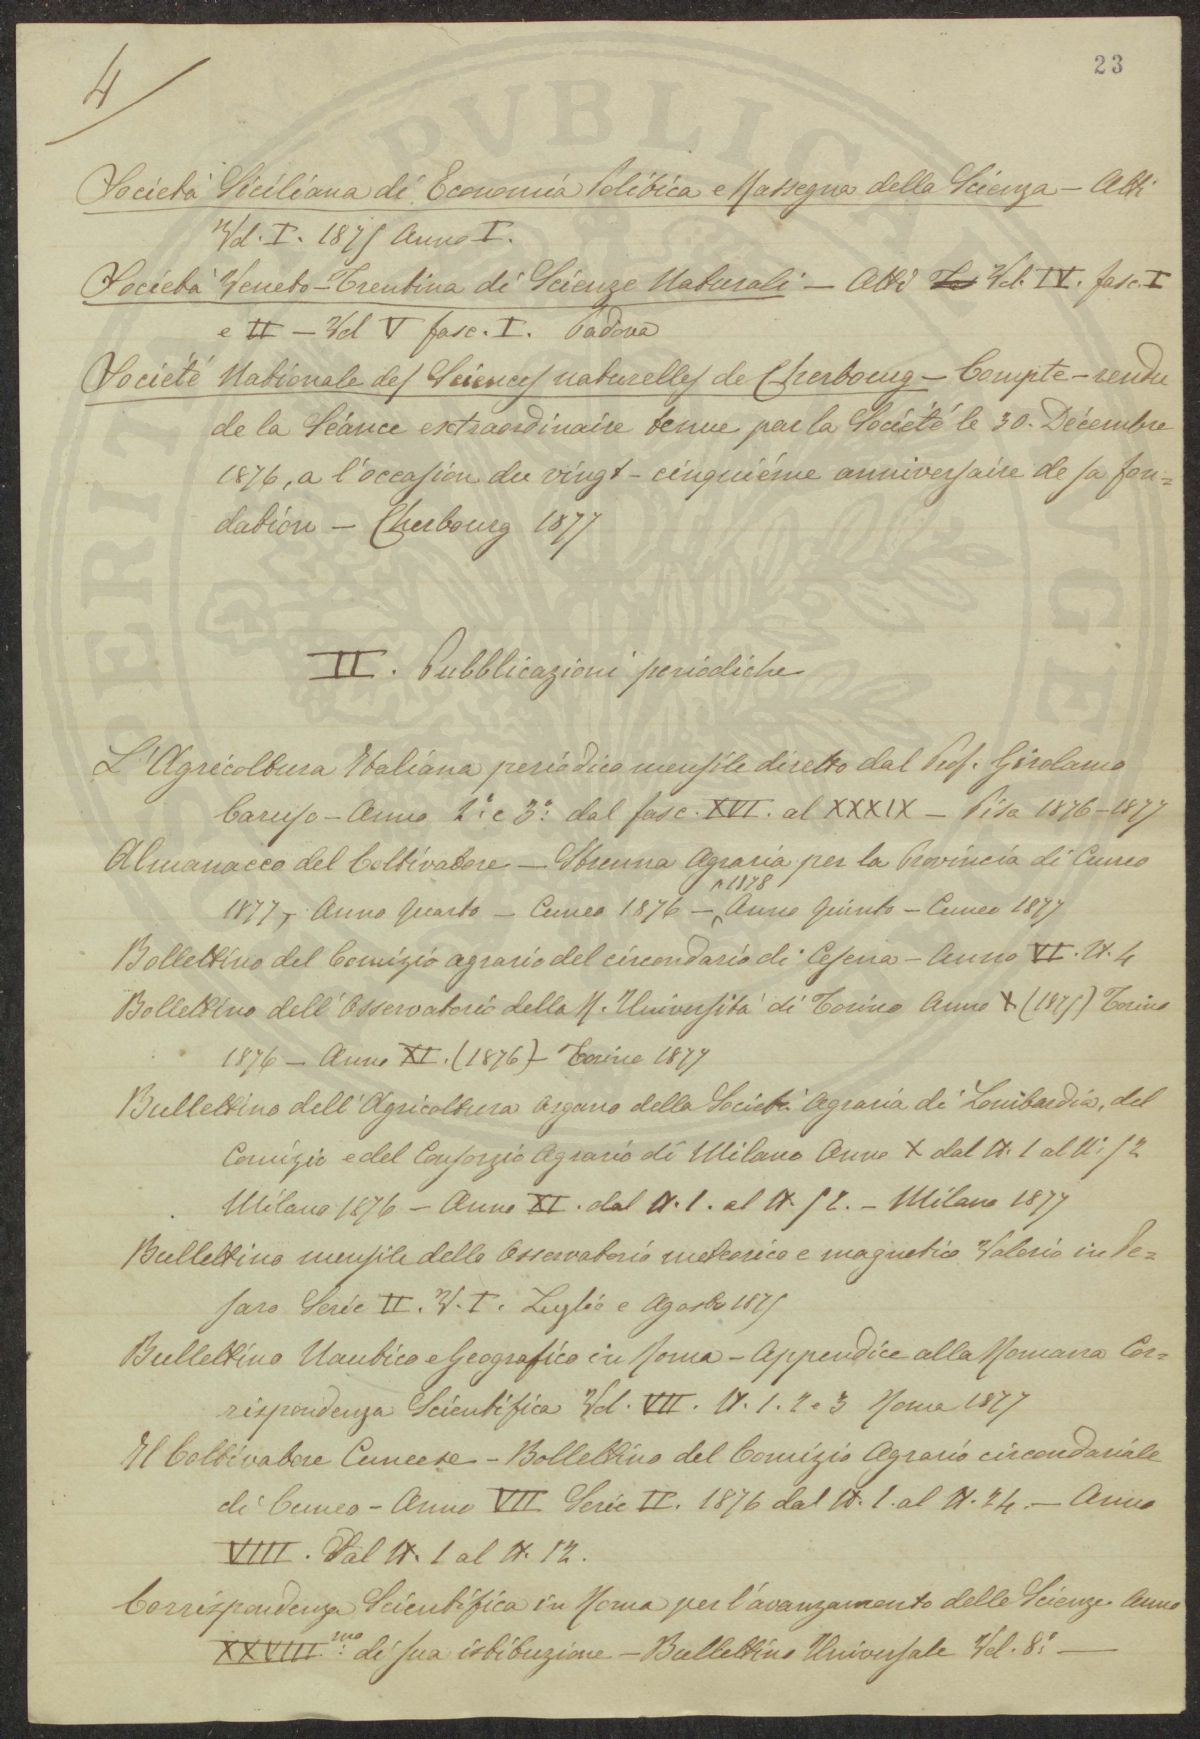 4
23
Società Siciliana di Economia Politica e Rassegna della Scienza – Atti
Vol. I. 1875 Anno I.
Società Veneto-Trentina di Scienze Naturali – Atti Vol. IV. fasc. I
e II – Vol V fasc. I. Padova
Societé Nationale des Sciences naturelles de Cherbourg – Compte-rendu
de la Séance extraordinaire tenue par la Société le 30. Décembre
1876, a l'occasion du vingt-cinquiéme anniversaire de sa fon=
dation – Cherbourg 1877
II. Pubblicazioni periodiche
L'Agricoltura Italiana periodico mensile diretto dal Prof. Girolamo
Caruso – Anno 2º e 3º dal fasc. XVI. al XXXIX – Pisa 1876-1877
Almanacco del Coltivatore – Strenna Agraria per la Provincia di Cuneo
1877, Anno Quarto – Cuneo 1876 – 1878 Anno Quinto – Cuneo 1877
Bollettino del Comizio agrario del circondario di Cesena – Anno VI. N. 4
Bollettino dell'Osservatorio della R. Università di Torino Anno X (1875) Torino
1876 – Anno XI. (1876) – Torino 1877
Bullettino dell'Agricoltura organo della Società Agraria di Lombardia, del
Comizio e del Consorzio Agrario di Milano Anno X dal N. 1 al N. 52
Milano 1876 – Anno XI. dal N. 1. al N. 52. – Milano 1877
Bullettino mensile dello Osservatorio meteorico e magnetico Valerio in Pe=
saro Serie II. V. I. Luglio e Agosto 1875
Bullettino Nautico e Geografico in Roma – Appendice alla Romana Cor=
rispondenza Scientifica Vol. VII. N. 1. 2 e 3 Roma 1877
Il Coltivatore Cuneese – Bollettino del Comizio Agrario circondariale
di Cuneo – Anno VII Serie II. 1876 dal N. 1. al N. 24. – Anno
VIII. Dal N. 1 al N. 12.
Corrispondenza Scientifica in Roma per l'avanzamento delle Scienze. Anno
XXVIII.mo di sua istituzione – Bullettino Universale Vol. 8º –
PERITE PVBLICAE